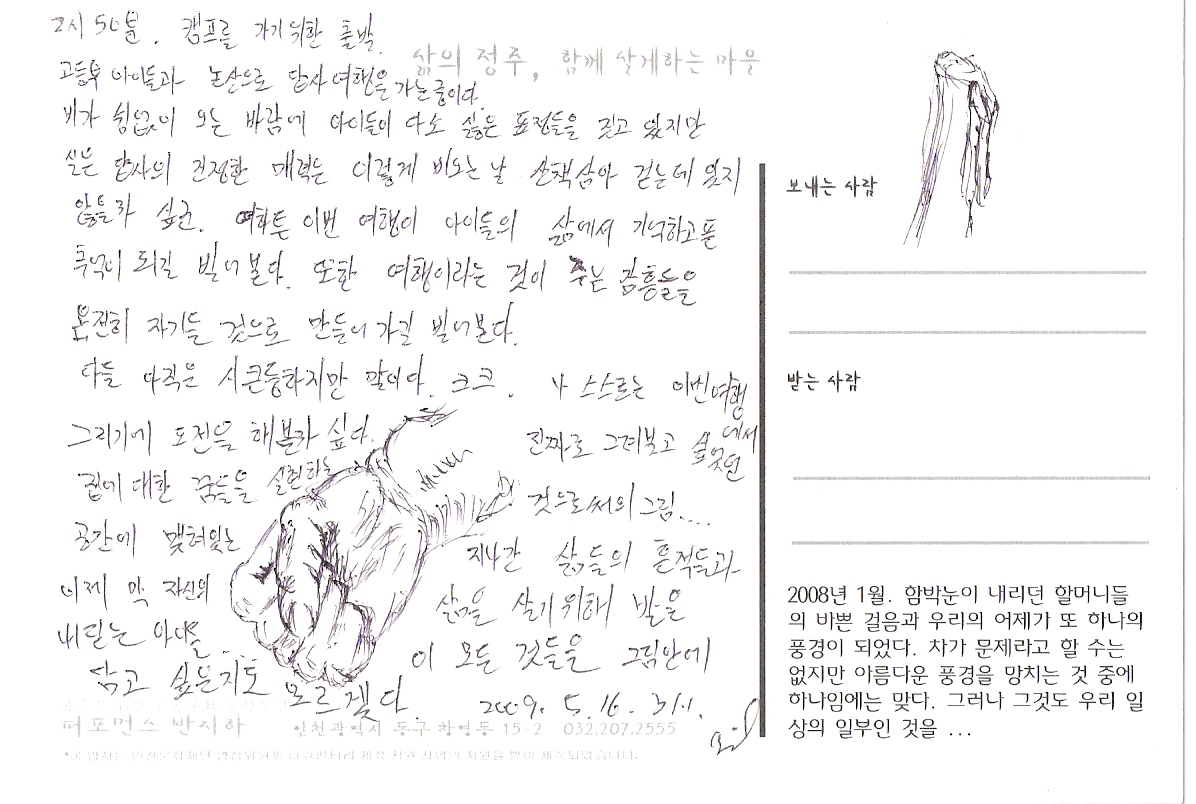 2시 50분. 캠프를 가기위한 출발.
삶의 정주, 함께 살게하는 마을
고등부 아이들과 논산으로 답사여행을 가는 중이다.
비가 쉼없이 오는 바람에 아이들이 다소 싫은 표정들을 짓고 있지만
실은 답사의 진정한 매력은 이렇게 비오는 날 산책삼아 걷는데 있지
않을라 싶군. 여하튼 이번 여행이 아이들의 삶에서 기억하고픈
추억이 되길 빌어본다. 또한 여행이라는 것이 주는 감흥들을
온전히 자기들 것으로 만들어 가길 빌어본다.
다들 아직은 시큰둥하지만 말이다. 크크. 나 스스로는 이번여행에서
그리기에 도전을 해볼라 싶다. 진짜로 그려보고 싶었던
집에 대한 꿈들을 실현하는 것으로써의 그림....
공간에 맺혀있는 지나간 삶들의 흔적들과
이제 막 자신의 삶을 살기위해 발을
내딛는 아이들 이 모든 것들을 그림안에
담고 싶은지도 모르겠다. 2009. 5. 16.
퍼포먼스 반지하 인천광역시 동구 창영동 15-2 032.207.2555
보내는 사람
받는 사람
2008년 1월. 함박눈이 내리던 할머니들
의 바쁜 걸음과 우리의 어제가 또 하나의
풍경이 되었다. 차가 문제라고 할 수는
없지만 아름다운 풍경을 망치는 것 중에
하나임에는 맞다. 그러나 그것도 우리 일
상의 일부인 것을 ...